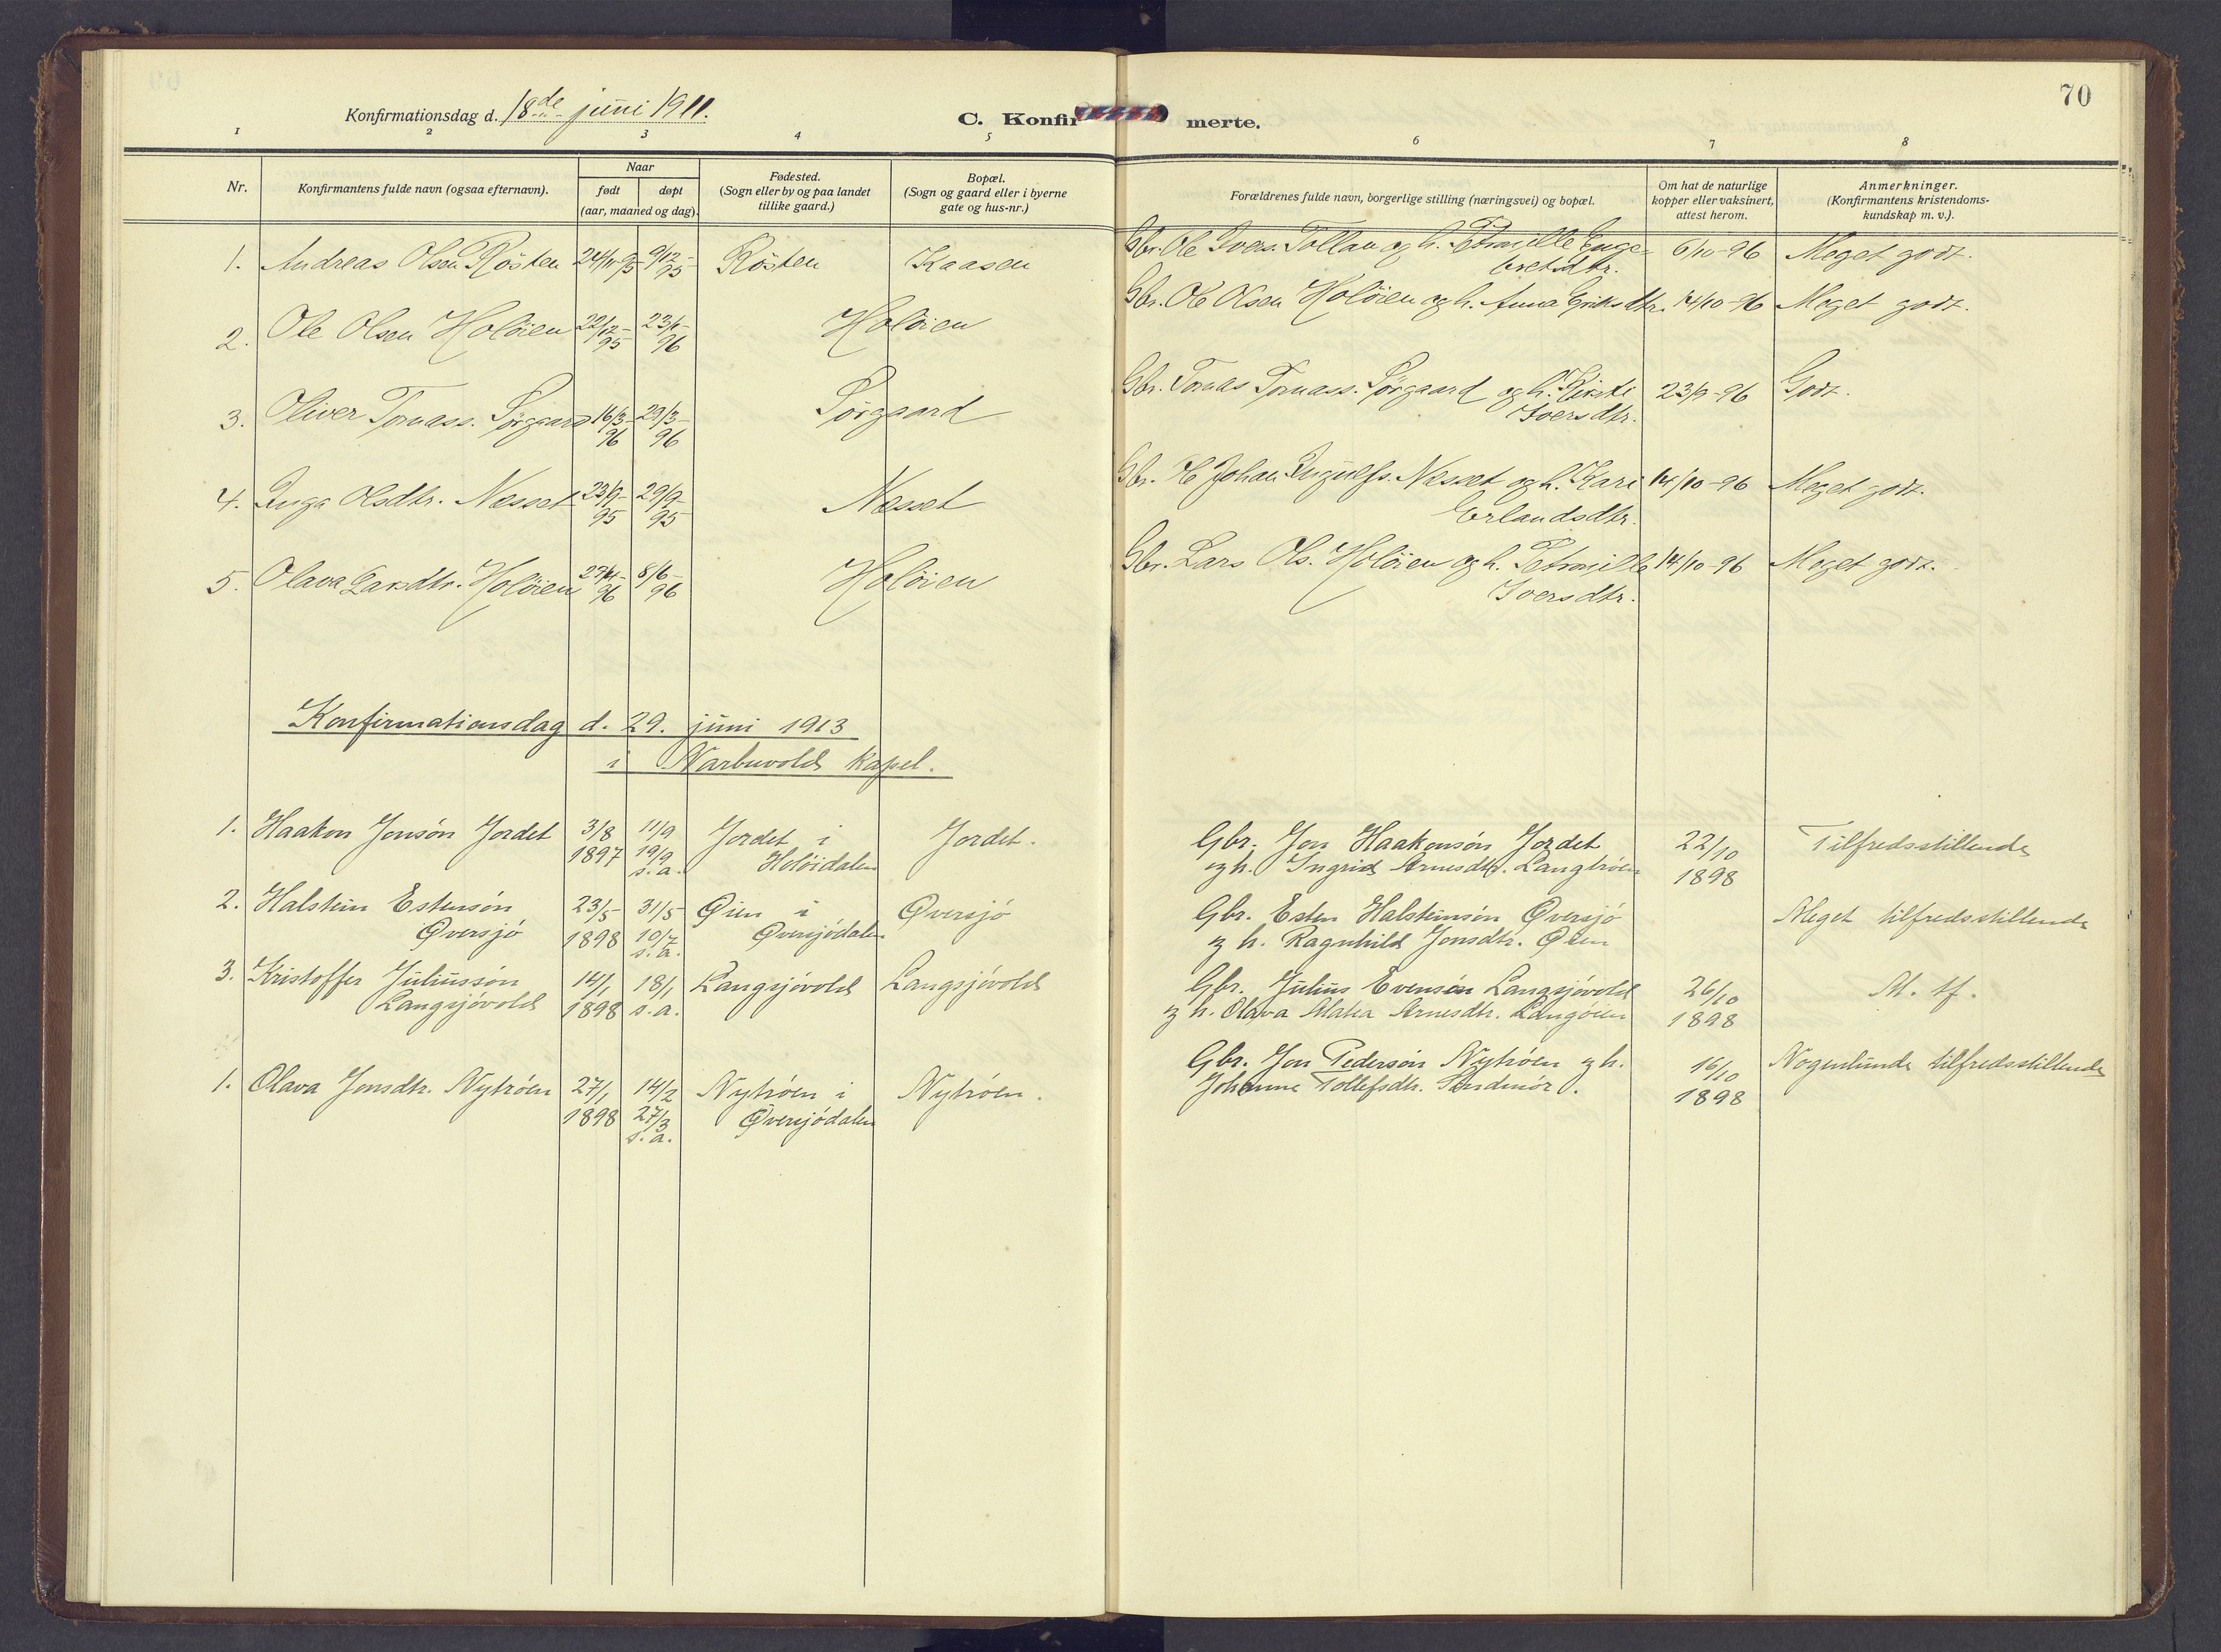 70
Konfirmationsdag d. 18de juni 1911.
C. Konfirmerte.
1 2 3 4 5 6 7 8
Nr.
Konfirmantens fulde navn (ogsaa efternavn).
Naar
født døpt
(aar, maaned og dag).
Fødested.
(Sogn eller by og paa landet
tillike gaard.)
Bopæl.
(Sogn og gaard eller i byerne
gate og hus-nr.)
Forældrenes fulde navn, borgerlige stilling (næringsvei) og bopæl.
Om hat de naturlige
kopper eller vaksinert,
attest herom.
Anmerkninger.
(Konfirmantens kristendoms-
kundskap m. v.).
1. Andreas Olsen Røsten 24/11-95 9/12-95 Røsten Kaasen Gbr. Ole Ivers. Tollan og h. Petronille Enge-
bretsdtr. 6/10-96 Meget godt.
2. Ole Olsen Holøien 22/12-95 23/1-96 Holøien Gbr. Ole Olsen Holøien og h. Anne Eriksdtr. 14/10-96 Meget godt.
3. Oliver Tomass. Sørgaard 16/3-96 29/3-96 Sørgaard Gbr. Tomas Tomass. Sørgaard og h. Kirsti
Iversdtr. 23/9-96 Godt.
4. Inga Olsdtr. Nesset 23/9-95 29/9-95 Nesset Gbr. Johan Ingulfs. Nesset og h. Kari
Erlandsdtr. 14/10-96 Meget godt.
5. Olava Larsdtr. Holøien 96 8/6-96 Holøien Gbr. Lars Ols. Holøien og h. Petronille
Iversdtr. 14/10-96 Meget godt.
Konfirmationsdag d. 29. juni 1913
i Narbuvold kapel.
1. Haakon Jonsøn Jordet 3/8 11/9 Jordet i Jordet. Gbr. Jon Haakonsøn Jordet 22/10 Tilfredsstillende
1897 19/9 s.a. Holøidalen og h. Ingrid Arnesdtr. Langtrøen 1898
2. Halstein Estensøn 23/5 31/5 Øien i Øversjø Gbr. Esten Halsteinsøn Øversjø Meget tilfredsstillende
Øversjø 1898 10/7 s.a. Øversjødalen og h. Ragnhild Jonsdtr. Øien
3. Kristoffer Juliussøn 14/1 18/1 Langsjøvold Langsjøvold Gbr. Julius Evensøn Langsjøvold 26/10 M. tf.
Langsjøvold 1898 s.a. og h. Olava Matea Arnesdtr. Langøien 1898
1. Olava Jonsdtr. Nytrøen 27/1 14/2 Nytrøen i Nytrøen. Gbr. Jon Pedersøn Nytrøen og h. 16/10 Nogenlunde tilfredsstillende
1898 27/3 s.a. Øversjødalen Johanne Tollefsdtr. Sandmør. 1898